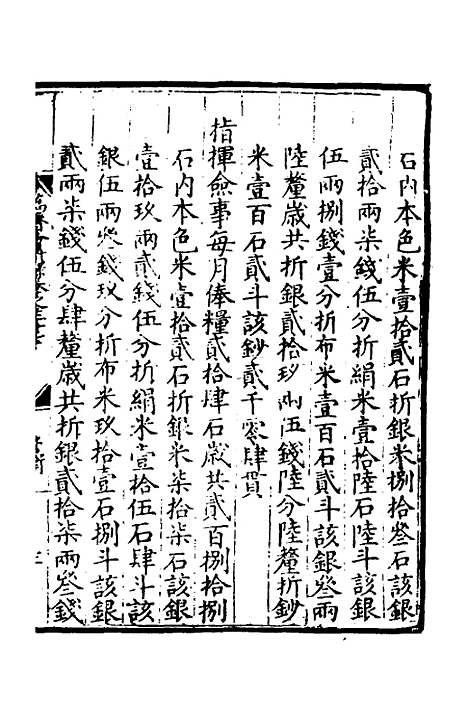 石內本色米壹拾貳石折銀米捌拾叁石該銀
貳拾兩柒錢伍分折絹米壹拾陸石陸斗該銀
伍兩捌錢壹分折布米壹百石貳斗該銀叁兩
陸釐歲共折銀貳拾玖兩伍錢陸分陸釐折鈔
米壹百石貳斗該鈔貳千零肆貫
指揮僉事每月俸糧貳拾肆石歲共貳百捌拾捌
石內本色米壹拾貳石折銀米柒拾柒石該銀
壹拾玖兩貳錢伍分折絹米壹拾伍石肆斗該
銀伍兩叁錢玖分折布米玖拾壹石捌斗該銀
貳兩柒錢伍分肆釐歲共折銀貳拾柒兩叁錢
萬曆會計錄卷